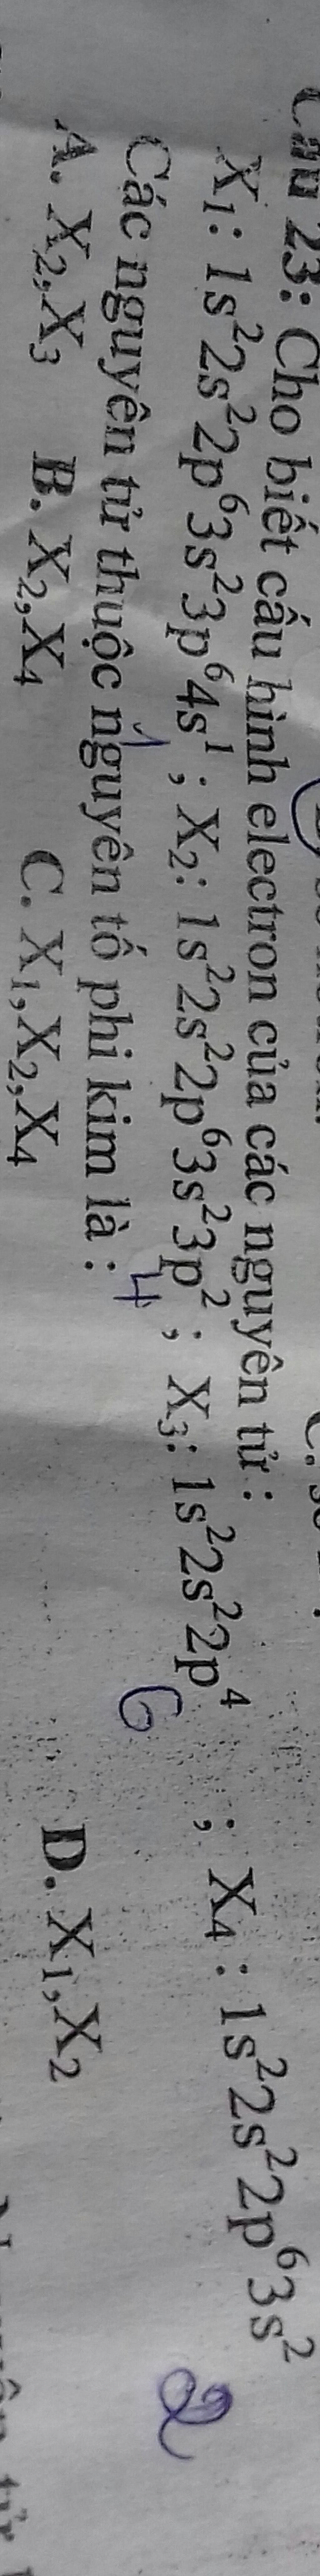 Câu 23: Cho biết cấu hình electron của các nguyên tử :
X₁: 1s²2s²2p⁶3s²3p⁶4s¹ ; X₂: 1s²2s²2p⁶3s²3p² ; X₃: 1s²2s²2p⁴ ; X₄ : 1s²2s²2p⁶3s²
1 4 6 2
Các nguyên tử thuộc nguyên tố phi kim là :
A. X₂,X₃ B. X₂,X₄ C. X₁,X₂,X₄ D. X₁,X₂